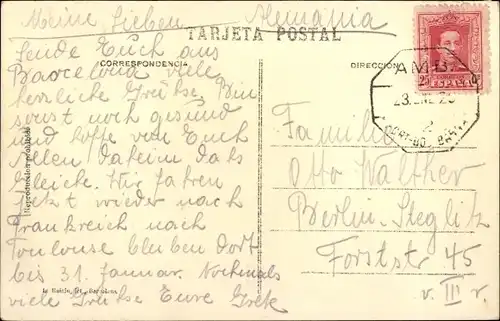 Meine Lieben Alemania
TARJETA POSTAL
CORRESPONDENCIA
DIRECCION
Sende Euch aus
Barcelona viele
herzliche Grüße. Bin
sonst noch gesund
und hoffe von Euch
Allen daheim das
Gleiche. Wir fahren
jetzt wieder nach
Frankreich nach
Toulouse bleiben dort
bis 31. Januar. Nochmals
viele Grüße Eure Grete
Familie
Otto Walther
Berlin-Steglitz
Forststr 45
v. III r.
AMB.
23. ENE 2
25
Reproducción prohibida